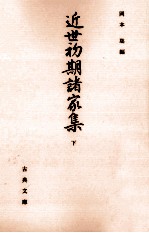 岡本 聡編
近世初期諸家集
下
古典文庫